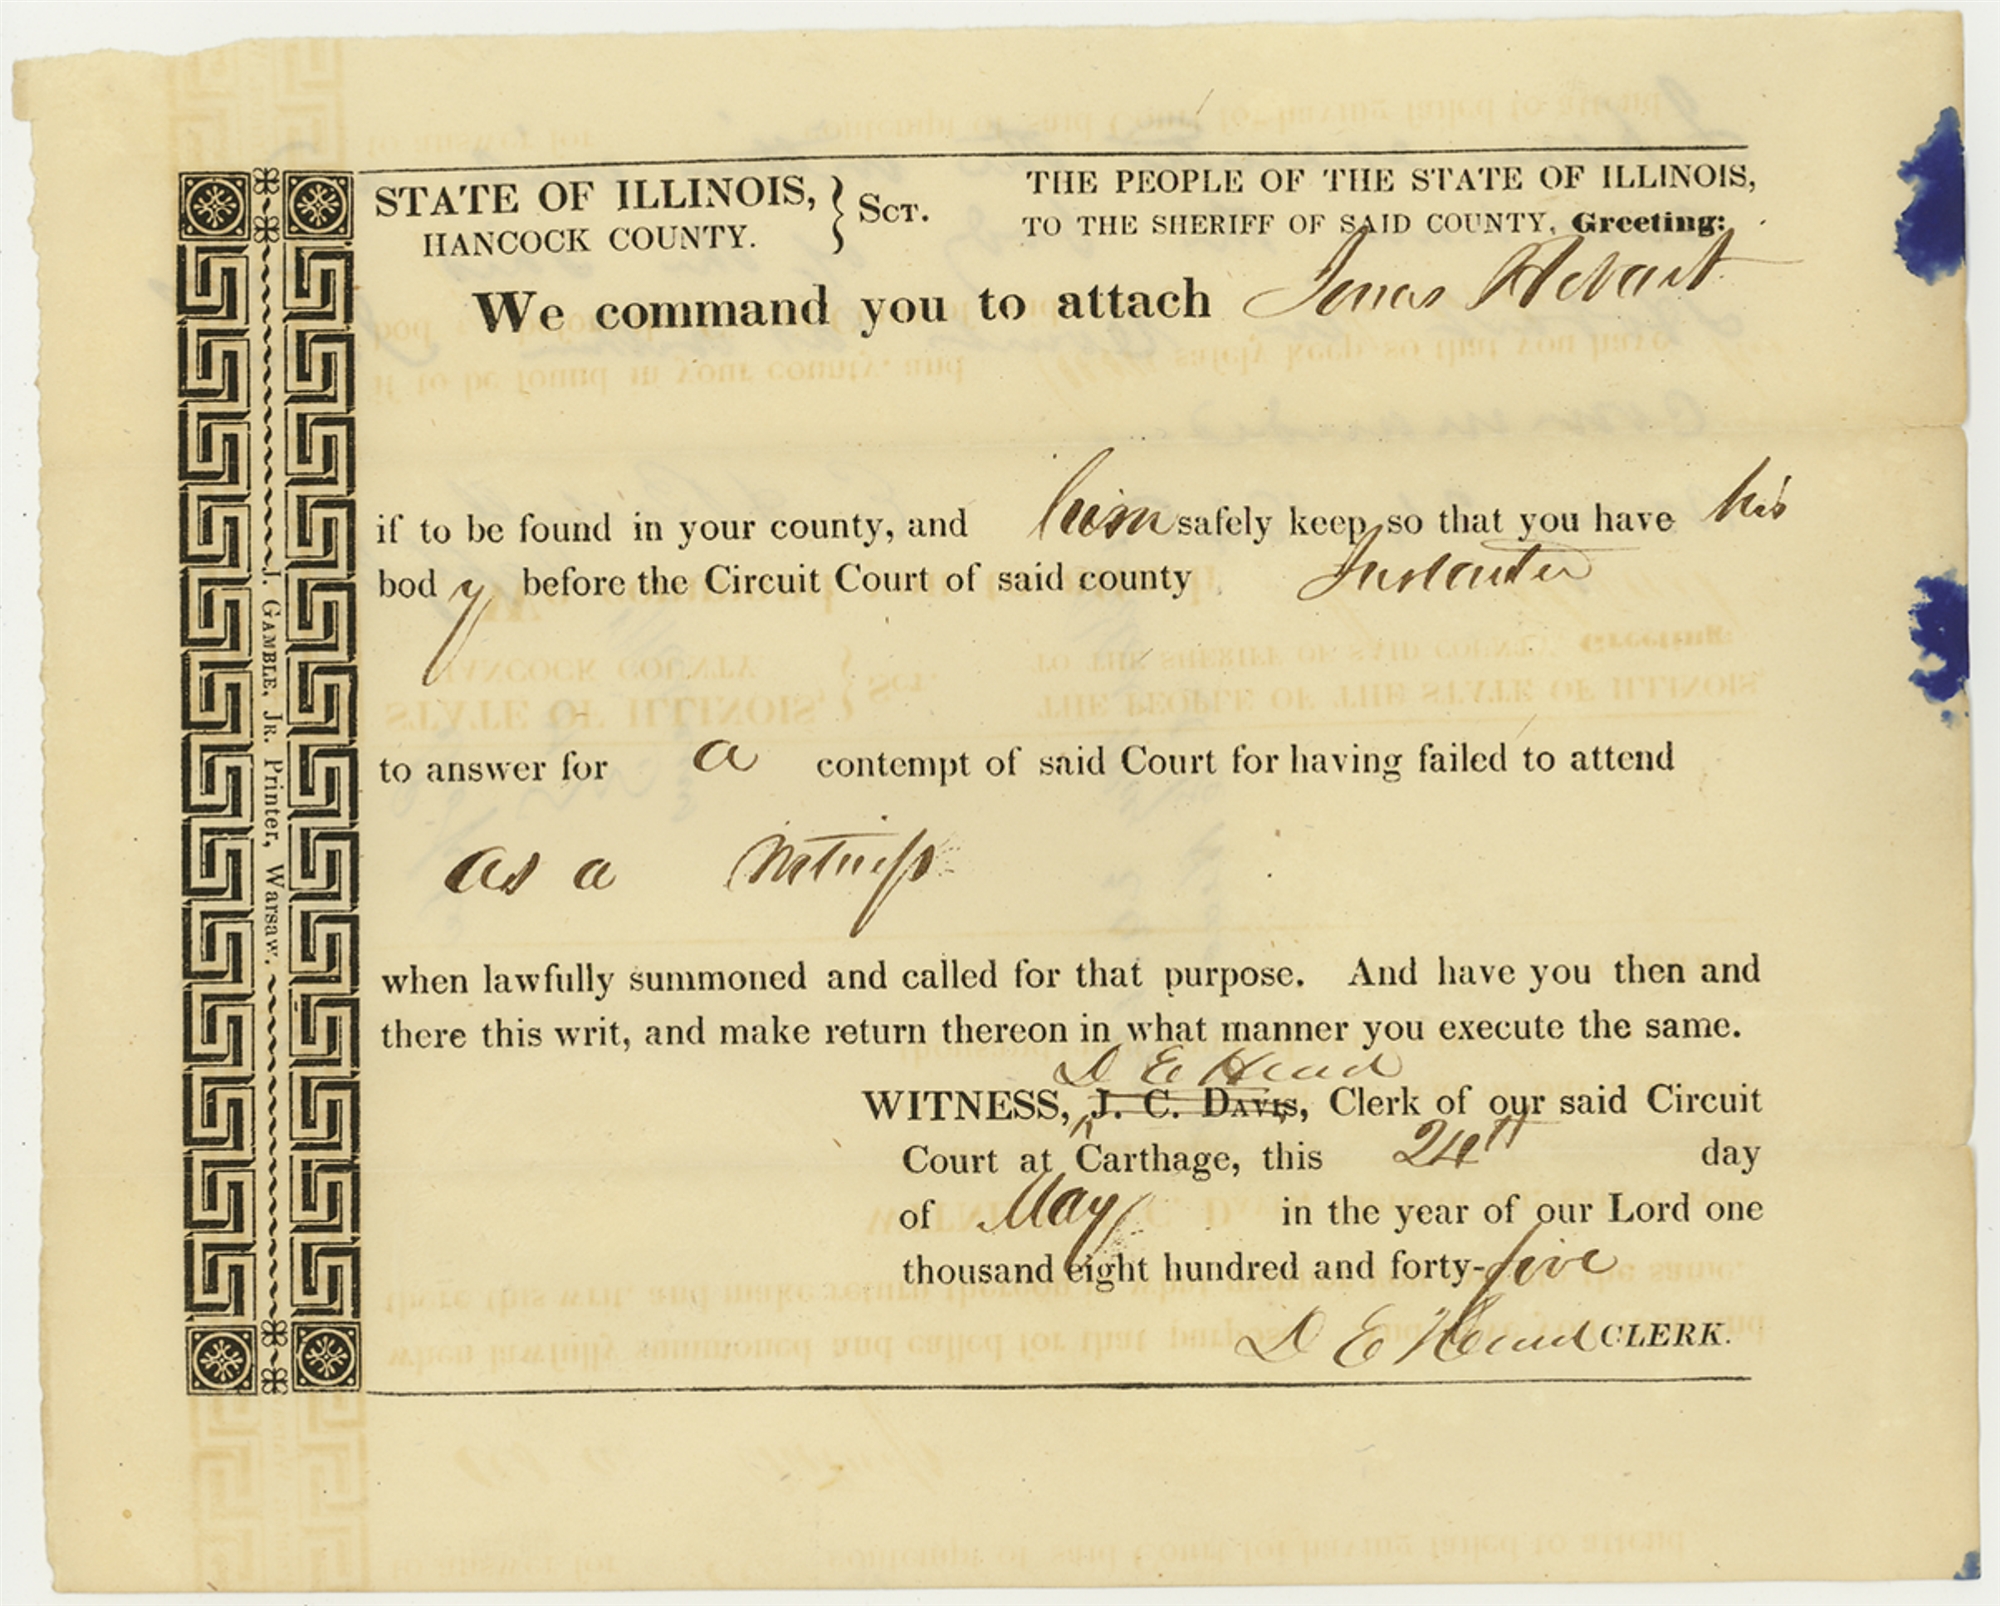 STATE OF ILLINOIS, } SCT.
HANCOCK COUNTY.
THE PEOPLE OF THE STATE OF ILLINOIS,
TO THE SHERIFF OF SAID COUNTY, Greeting:
We command you to attach Jonas Hobart
if to be found in your county, and him safely keep so that you have his
body before the Circuit Court of said county Instanter
to answer for a contempt of said Court for having failed to attend
as a Witness
when lawfully summoned and called for that purpose. And have you then and
there this writ, and make return thereon in what manner you execute the same.
D E Head
WITNESS, J. C. DAVIS, Clerk of our said Circuit
Court at Carthage, this 24th day
of May in the year of our Lord one
thousand eight hundred and forty-five
D E Head CLERK.
J. GAMBLE, JR. Printer, Warsaw.